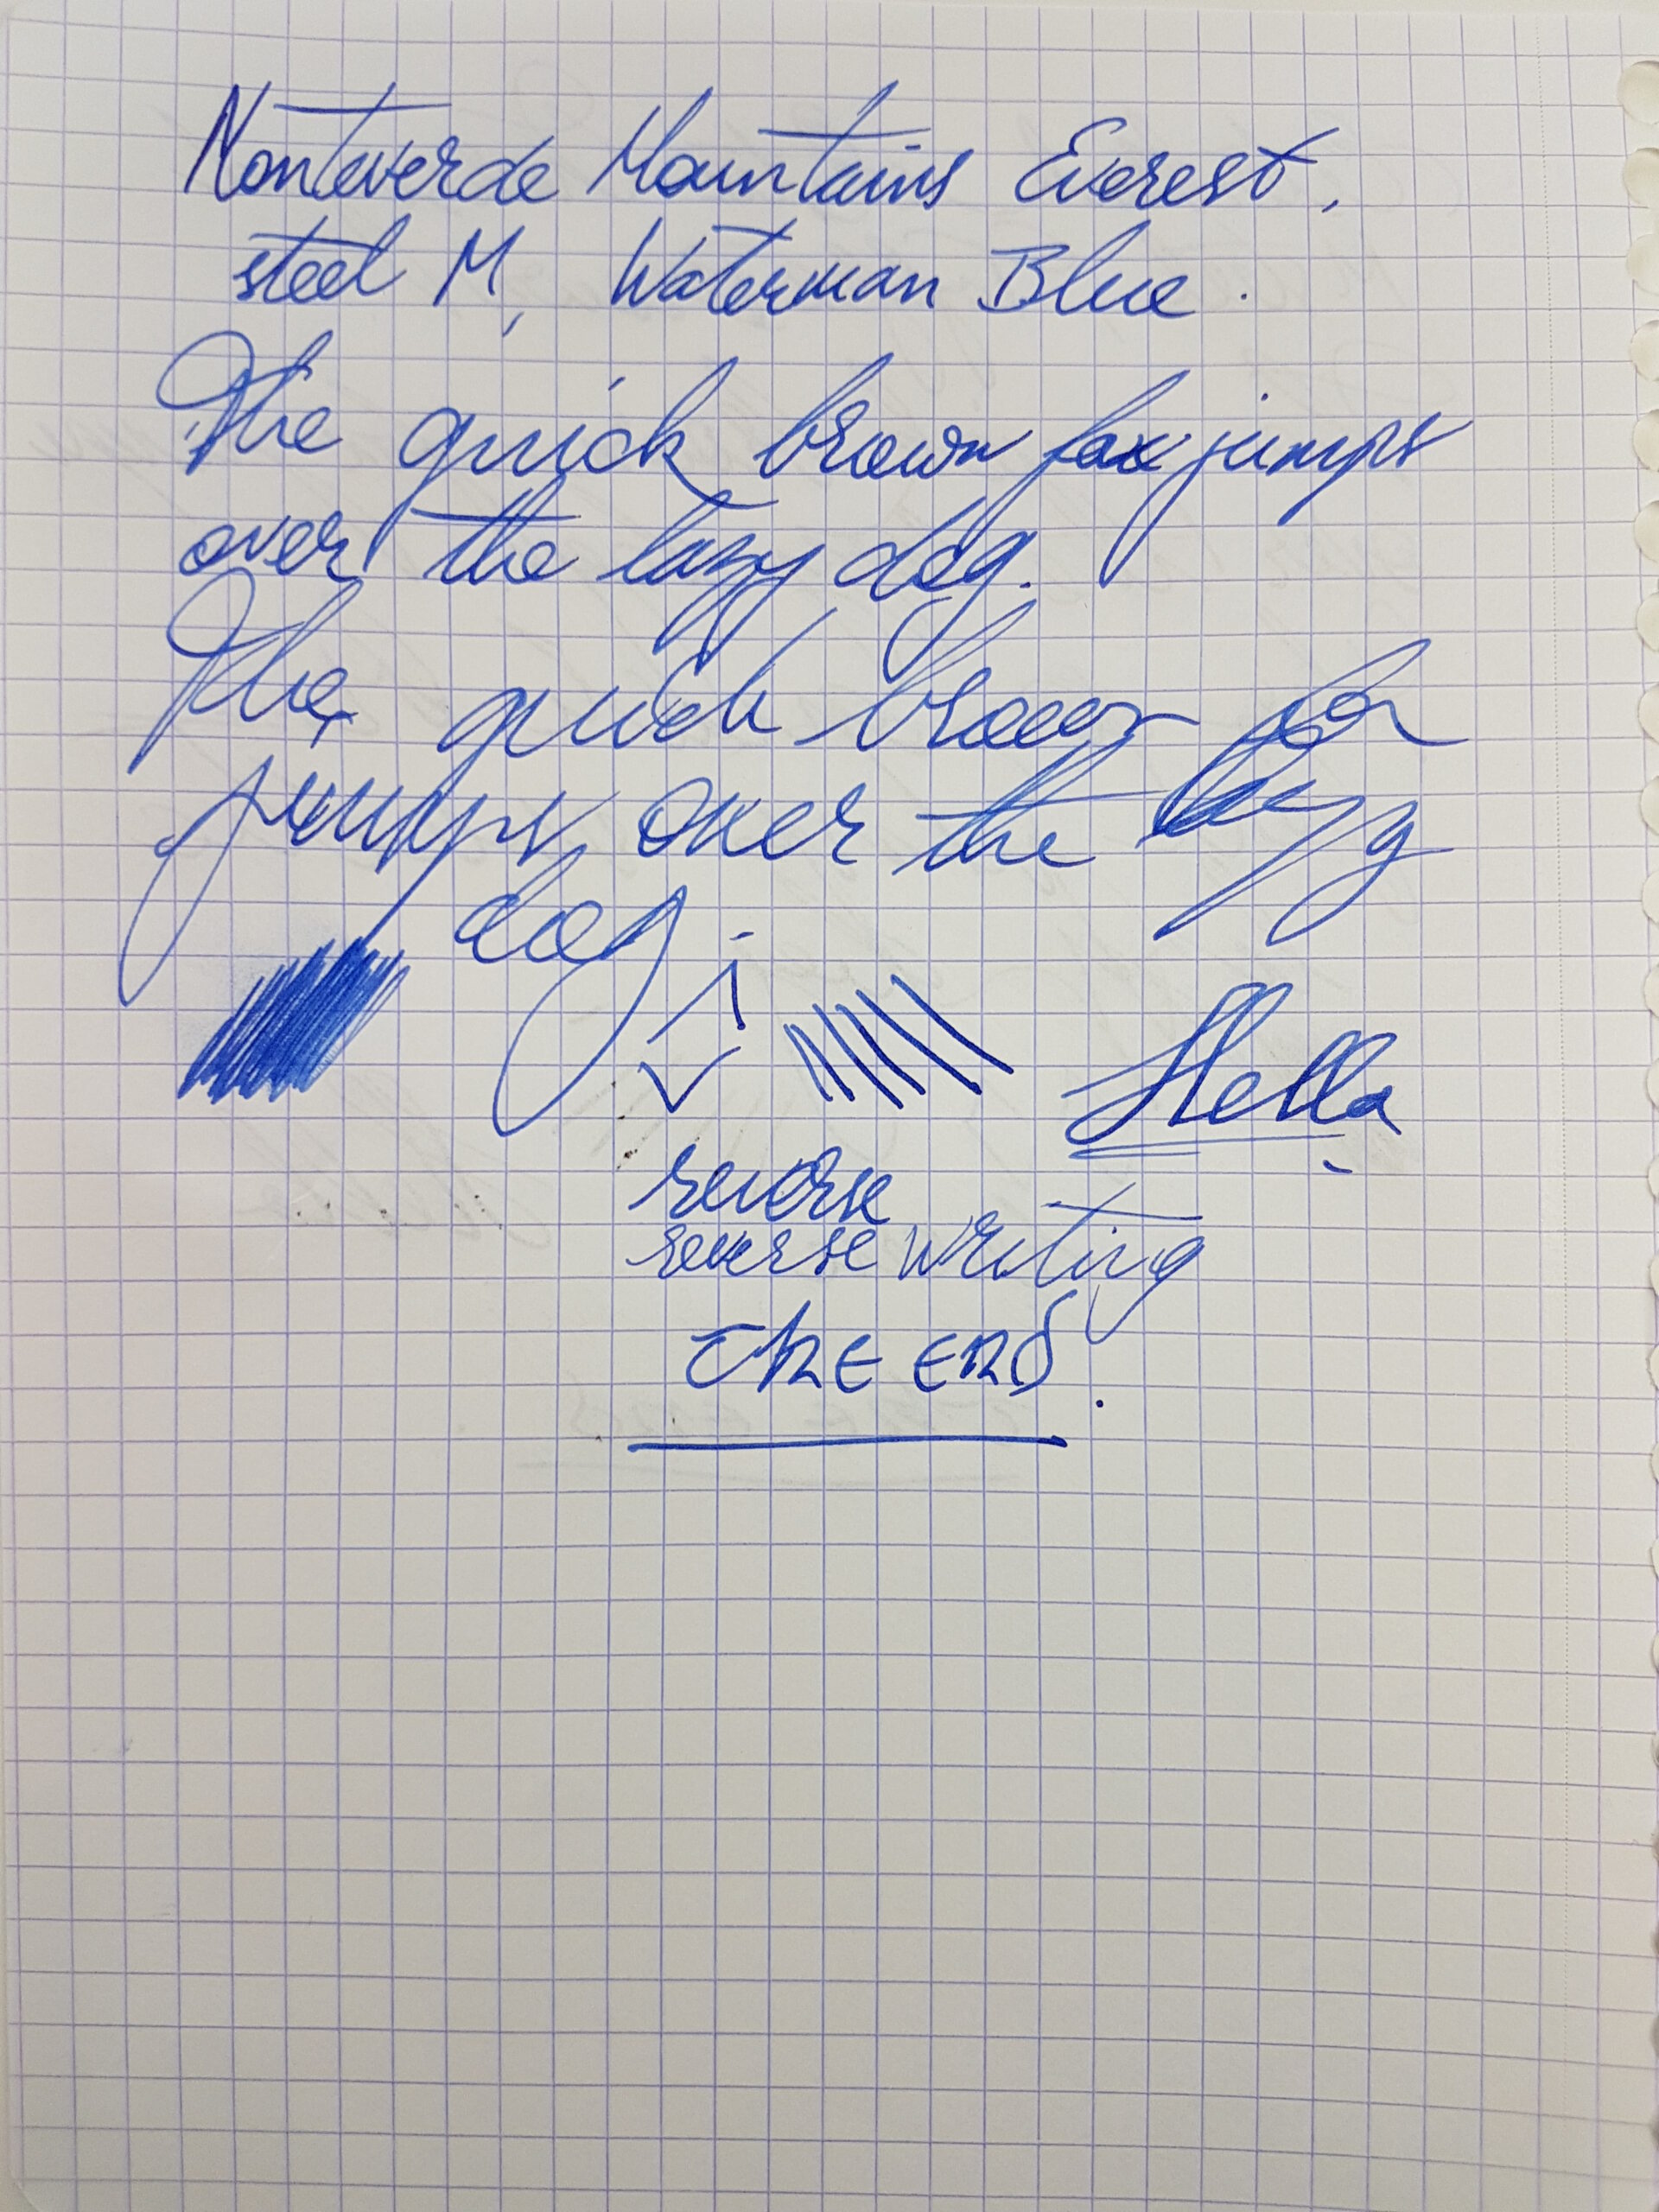 Monteverde Mountains Everest,
steel M, Waterman Blue.
The quick brown fox jumps
over the lazy dog.
The quick brown fox
jumps over the lazy
dog.
Hello
reverse
reverse writing
THE END.